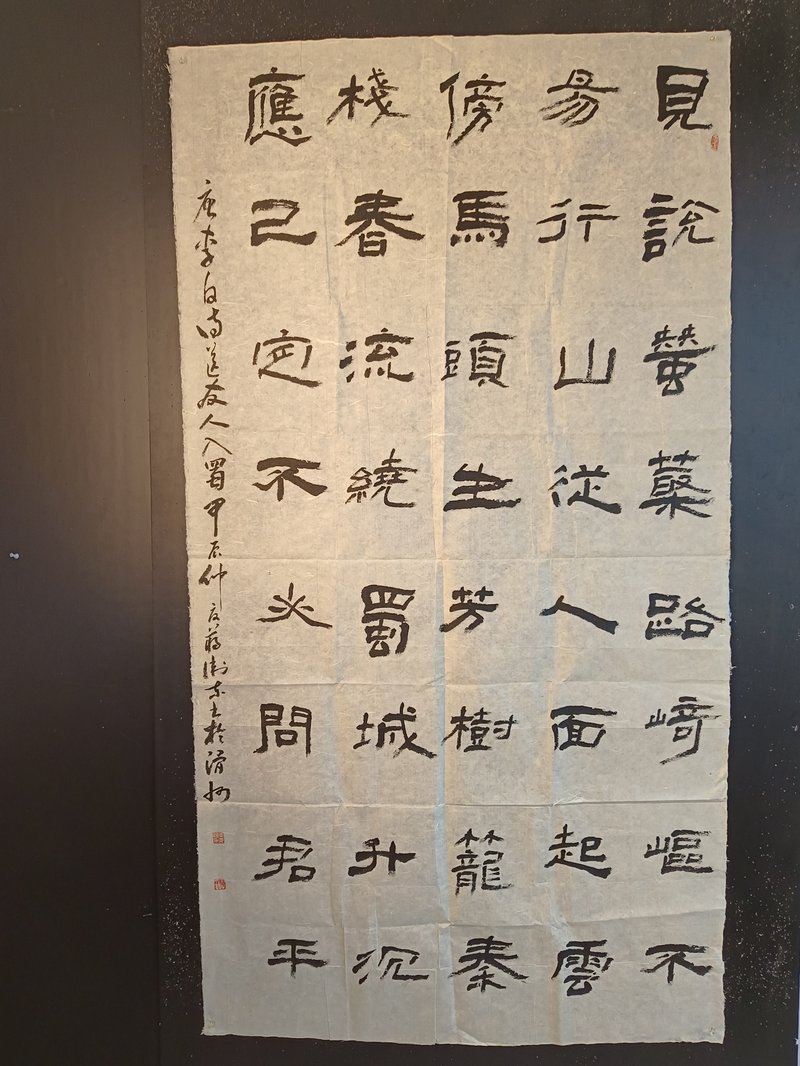 見說蠶叢路崎嶇不
易行山從人面起雲
傍馬頭生芳樹籠秦
棧春流繞蜀城升沉
應已定不必問君平
唐李白詩送友人入蜀甲辰仲夏蔣衛東書於滑州